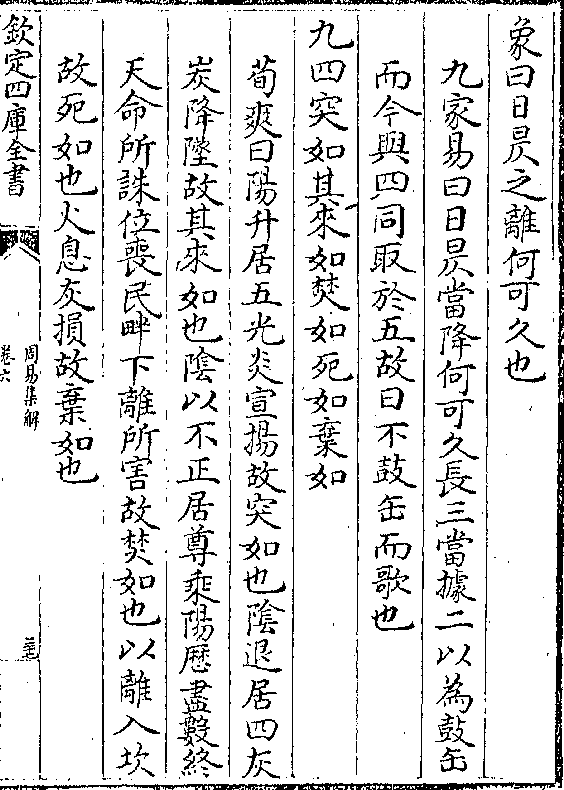 象曰日昃之離何可久也
九家易曰日昃當降何可久長三當據二以為鼓缶
而今與四同取於五故曰不鼓缶而歌也
九四突如其來如焚如死如棄如
荀爽曰陽升居五光炎宣揚故突如也陰退居四灰
炭降墜故其來如也陰以不正居尊乘陽歷盡數終
天命所誅位喪民畔下離所害故焚如也以離入坎
故死如也火息灰損故棄如也
欽定四庫全書
周易集解
卷六